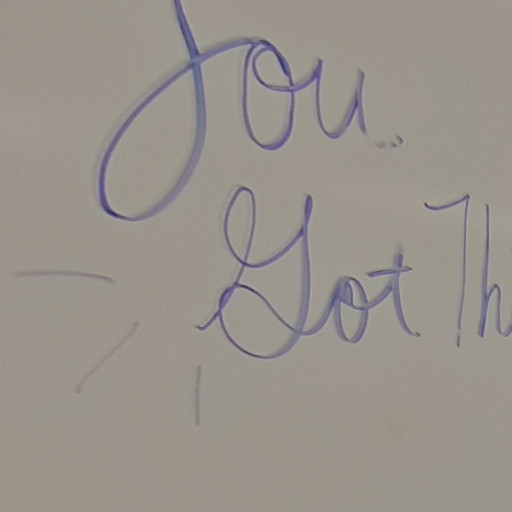 You
Got Th